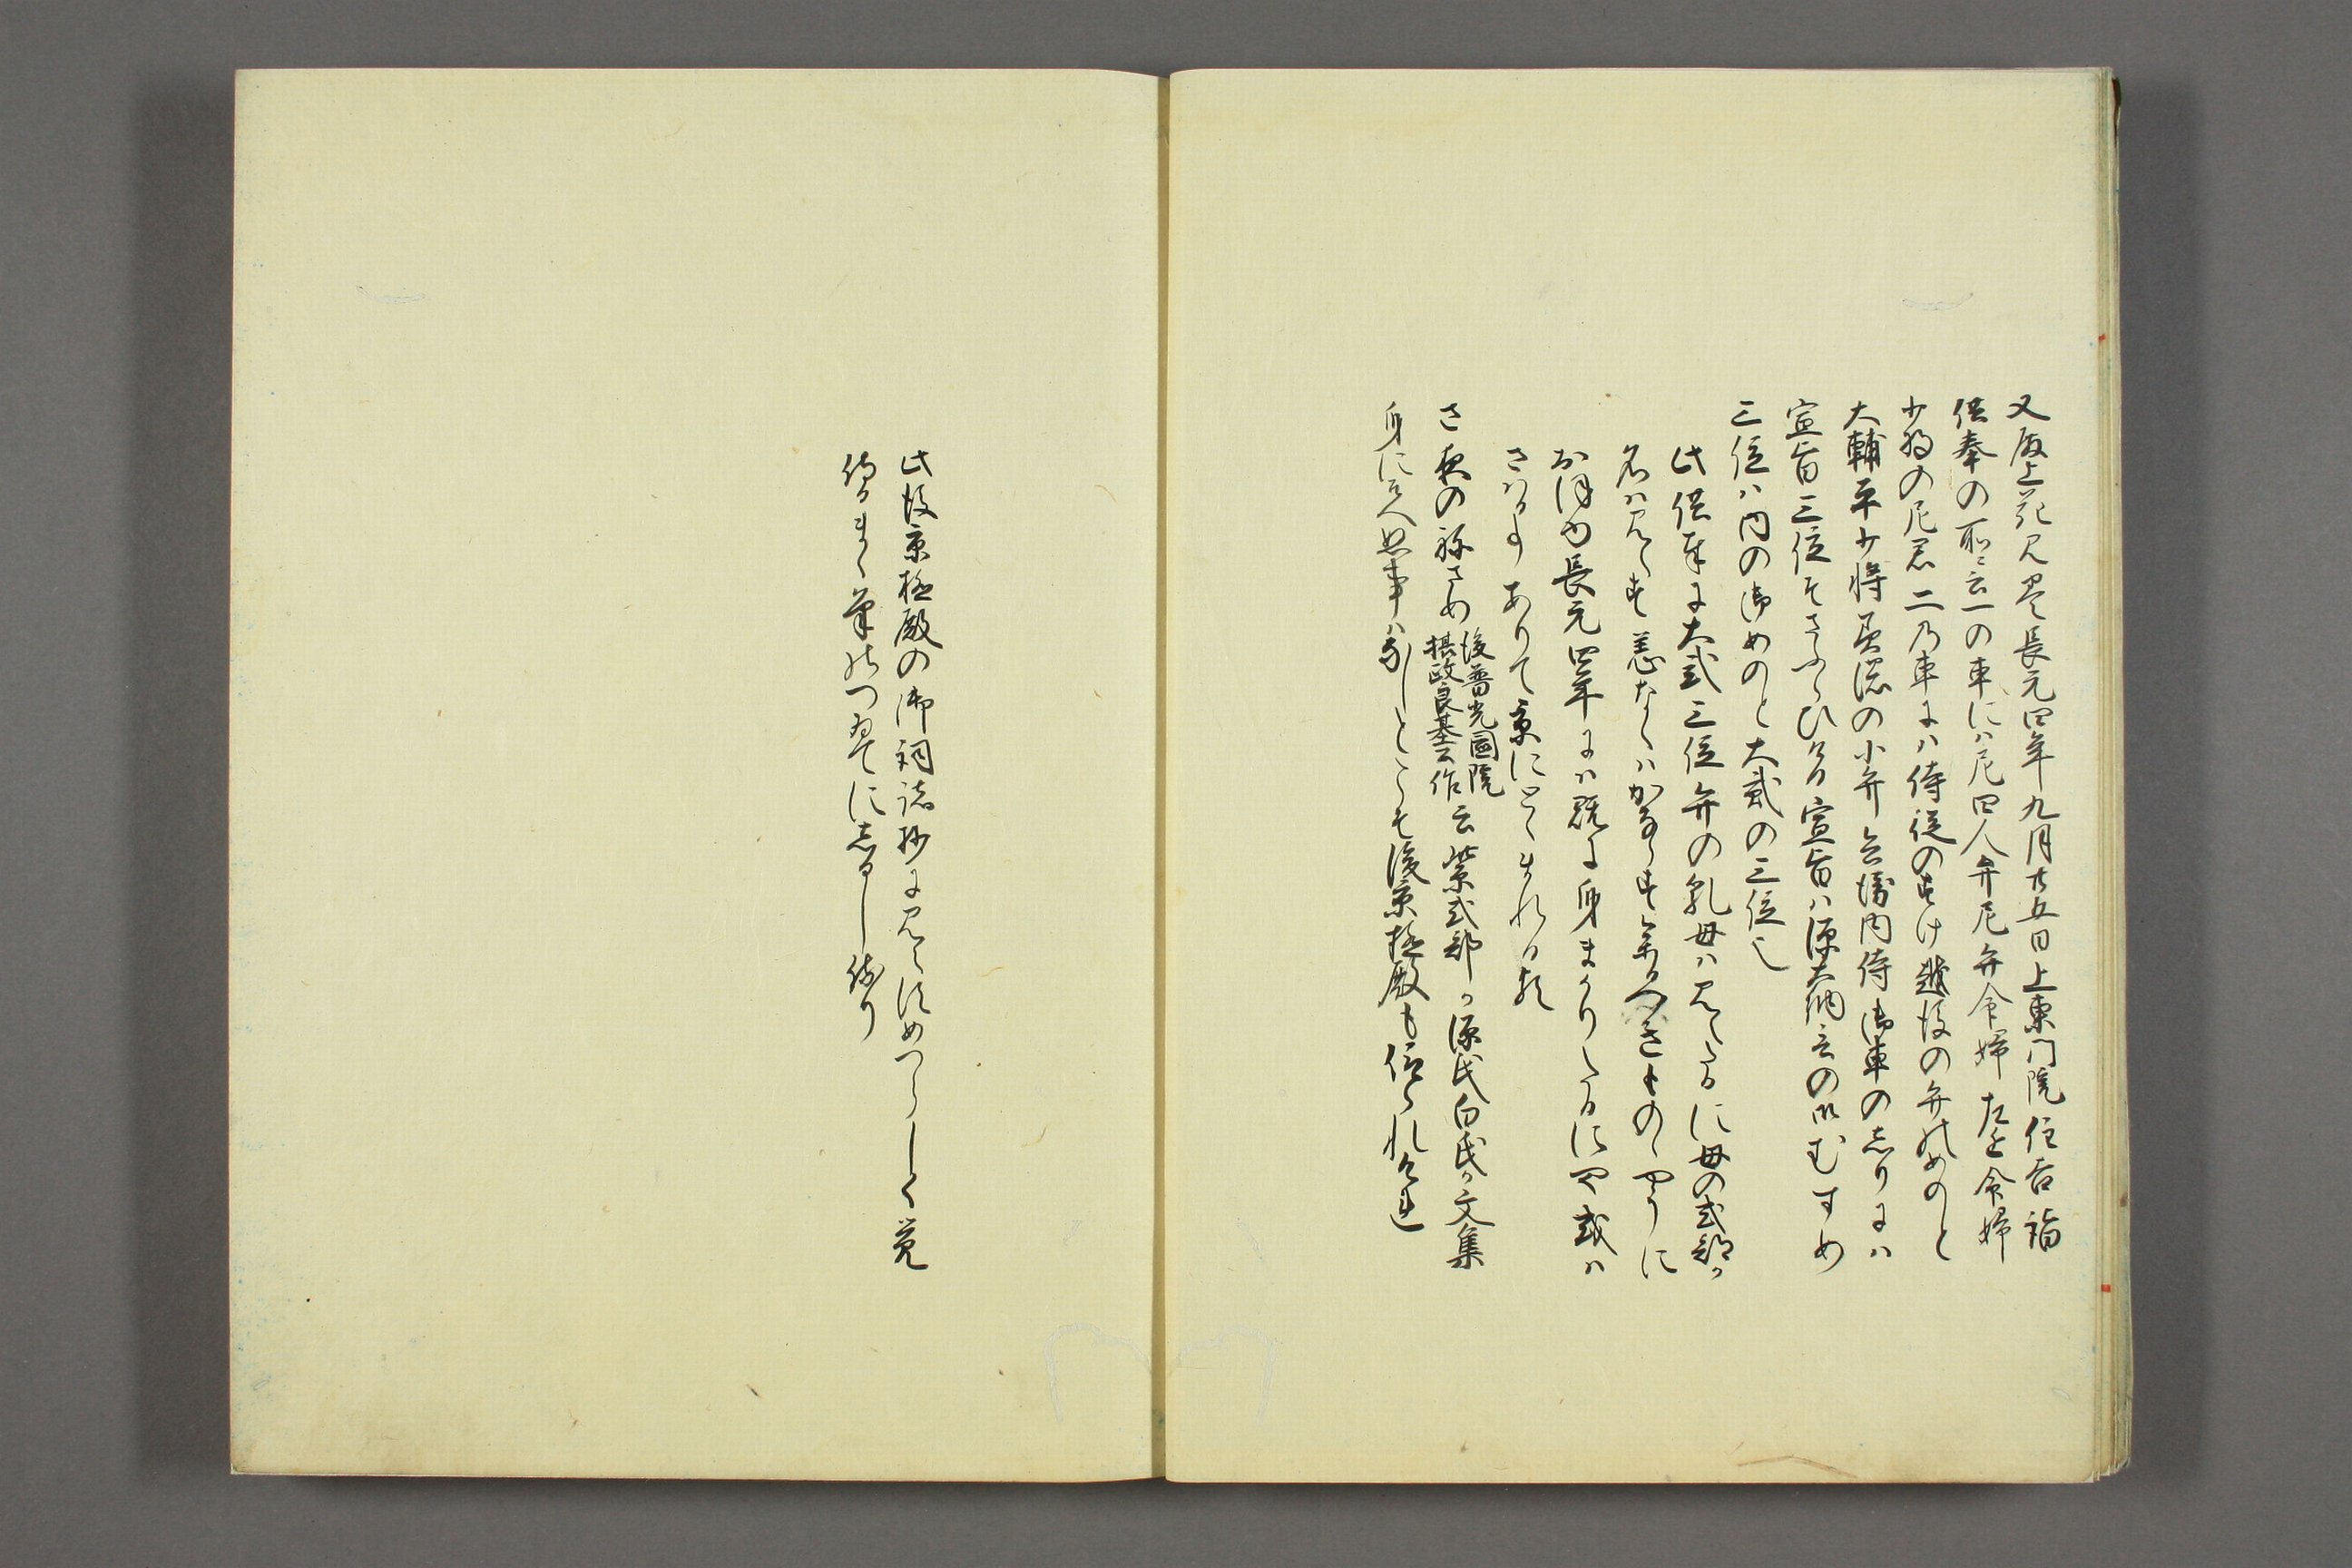 又殿上花見巻長元四年九月廿五日上東門院住吉詣
供奉の所ニ云一の車にハ尼四人弁尼弁命婦左近命婦
少将の尼君二乃車にハ侍従のすけ越後の弁のめのと
大輔平少将美濃の小弁 内侍御車のしりにハ
宣旨三位そさふらひける宣旨ハ源大納言の御むすめ
三位ハ内の御めのと大貳の三位也
此供奉に大弐三位弁の乳母ハ見えたるに母の式部か
名ハ見えす恙なくハかならす参るへきものゝやうに
おほゆ長元四年にハ既に身まかりたるにや或ハ
さはる事ありて京にとゝまれる歟
さ夜のねさめ後普光園院摂政良基公作云紫式部か源氏白氏か文集
身にそへぬ事ハなしとこそ後京極殿も仰られけれ
此後京極殿の御詞諸抄に見えすめつらしく覚
侍るまゝ筆のつゐてにしるし侍り